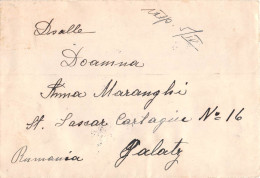 Dsalle
Doamna
Anna Maranghi
St. Lascar Cartagiu No 16
Rumania Galatz